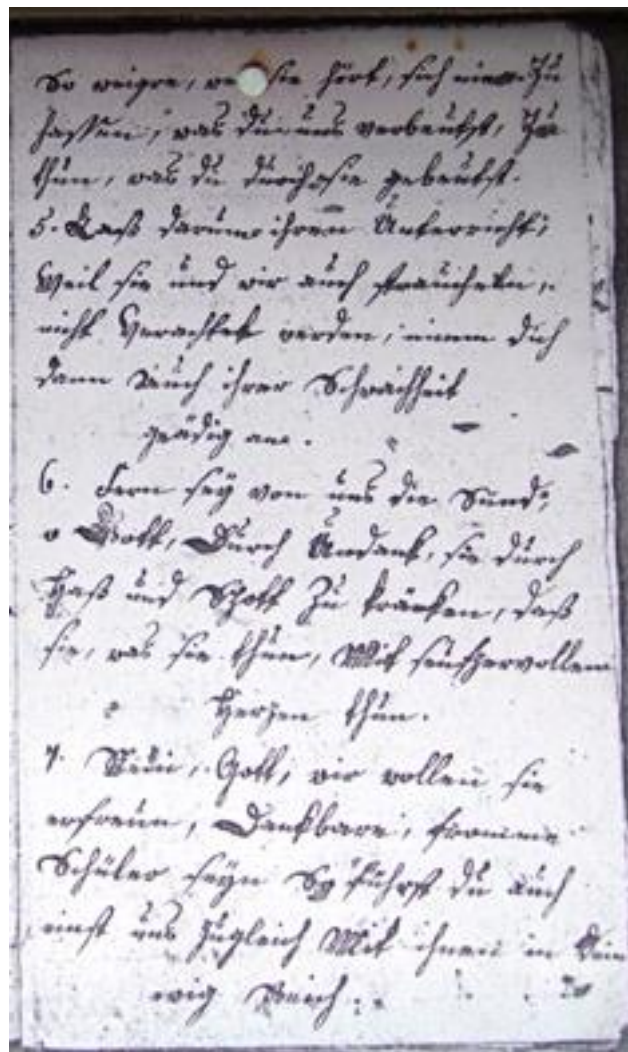 So weigre, wer sie hört, sich nie Zu
hassen, was du uns verbeutst, Zu
thun, was du durch sie gebeutst.
5. Laß darum ihren Unterricht,
Weil sie und wir auch straucheln,
nicht Verachtet werden, nimm dich
dann Auch ihrer Schwachheit
gnädig an.
6. Fern sey von uns die Sünd,
o Gott, Durch Undank, sie durch
Haß und Spott Zu kränken, daß
sie, was sie thun, Mit seufzervollem
Herzen thun.
7. Nein, Gott, wir wollen sie
erfreun, Dankbare, fromme
Schüler seyn So führst du auch
einst uns Zugleich Mit ihnen in Dein
ewig Reich.